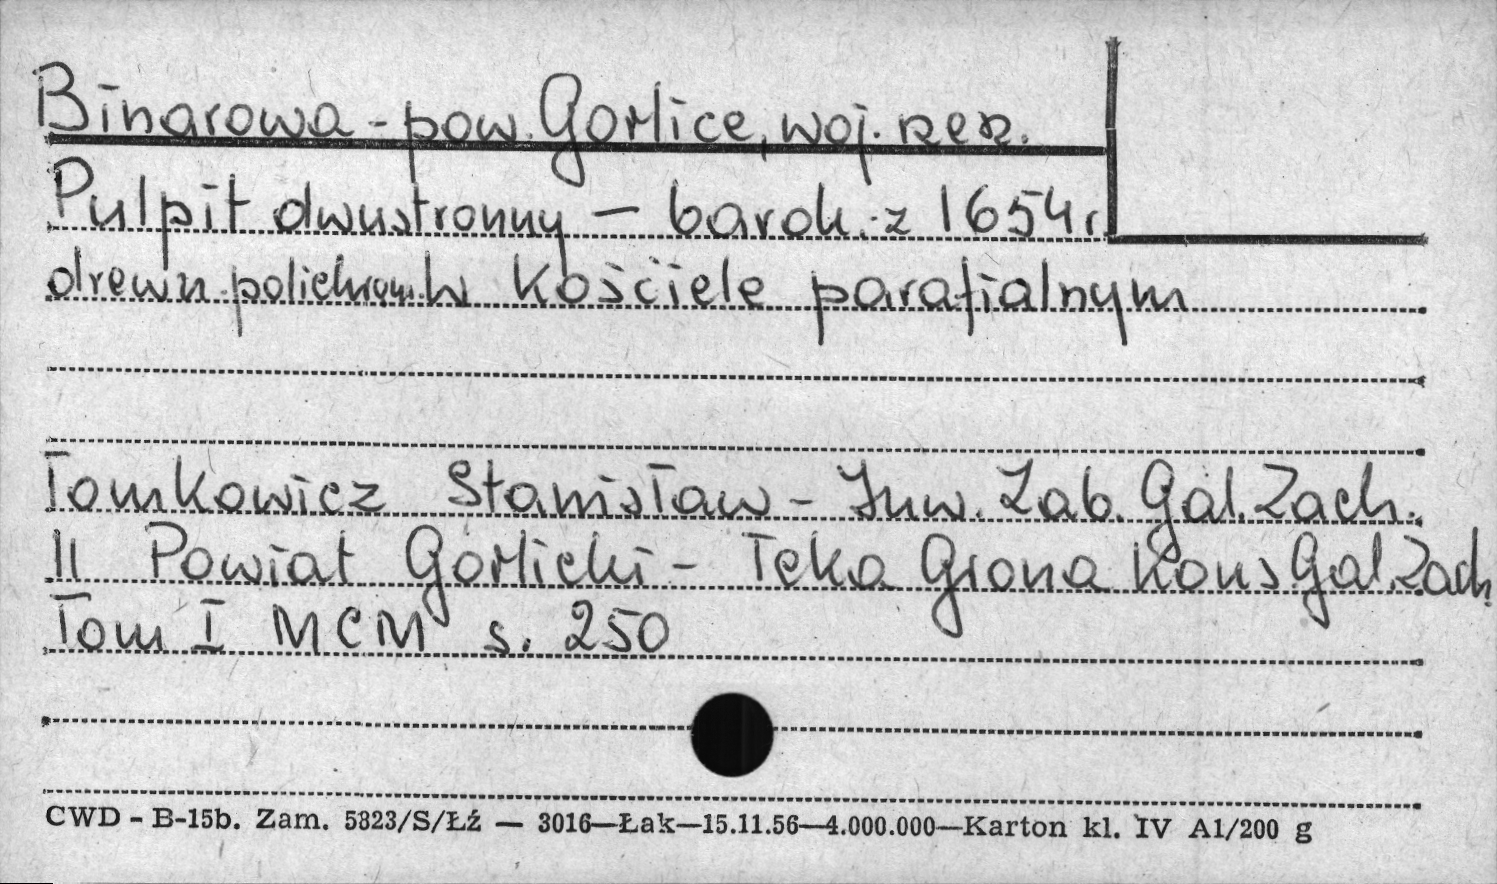 Binarowa - pow. Gorlice, woj. rzesz.
Pulpit dwustronny — barok. z 1654 r.
drewn. polichrom. w kościele parafialnym
Tomkowicz Stanisław - Inw. Zab. Gal. Zach.
II Powiat Gorlicki - Teka Grona Kons Gal. Zach.
Tom I MCM s. 250
CWD - B-15b. Zam. 5323/S/Łź — 3016—Łak—15.11.56—4.000.000—Karton kl. IV A1/200 g